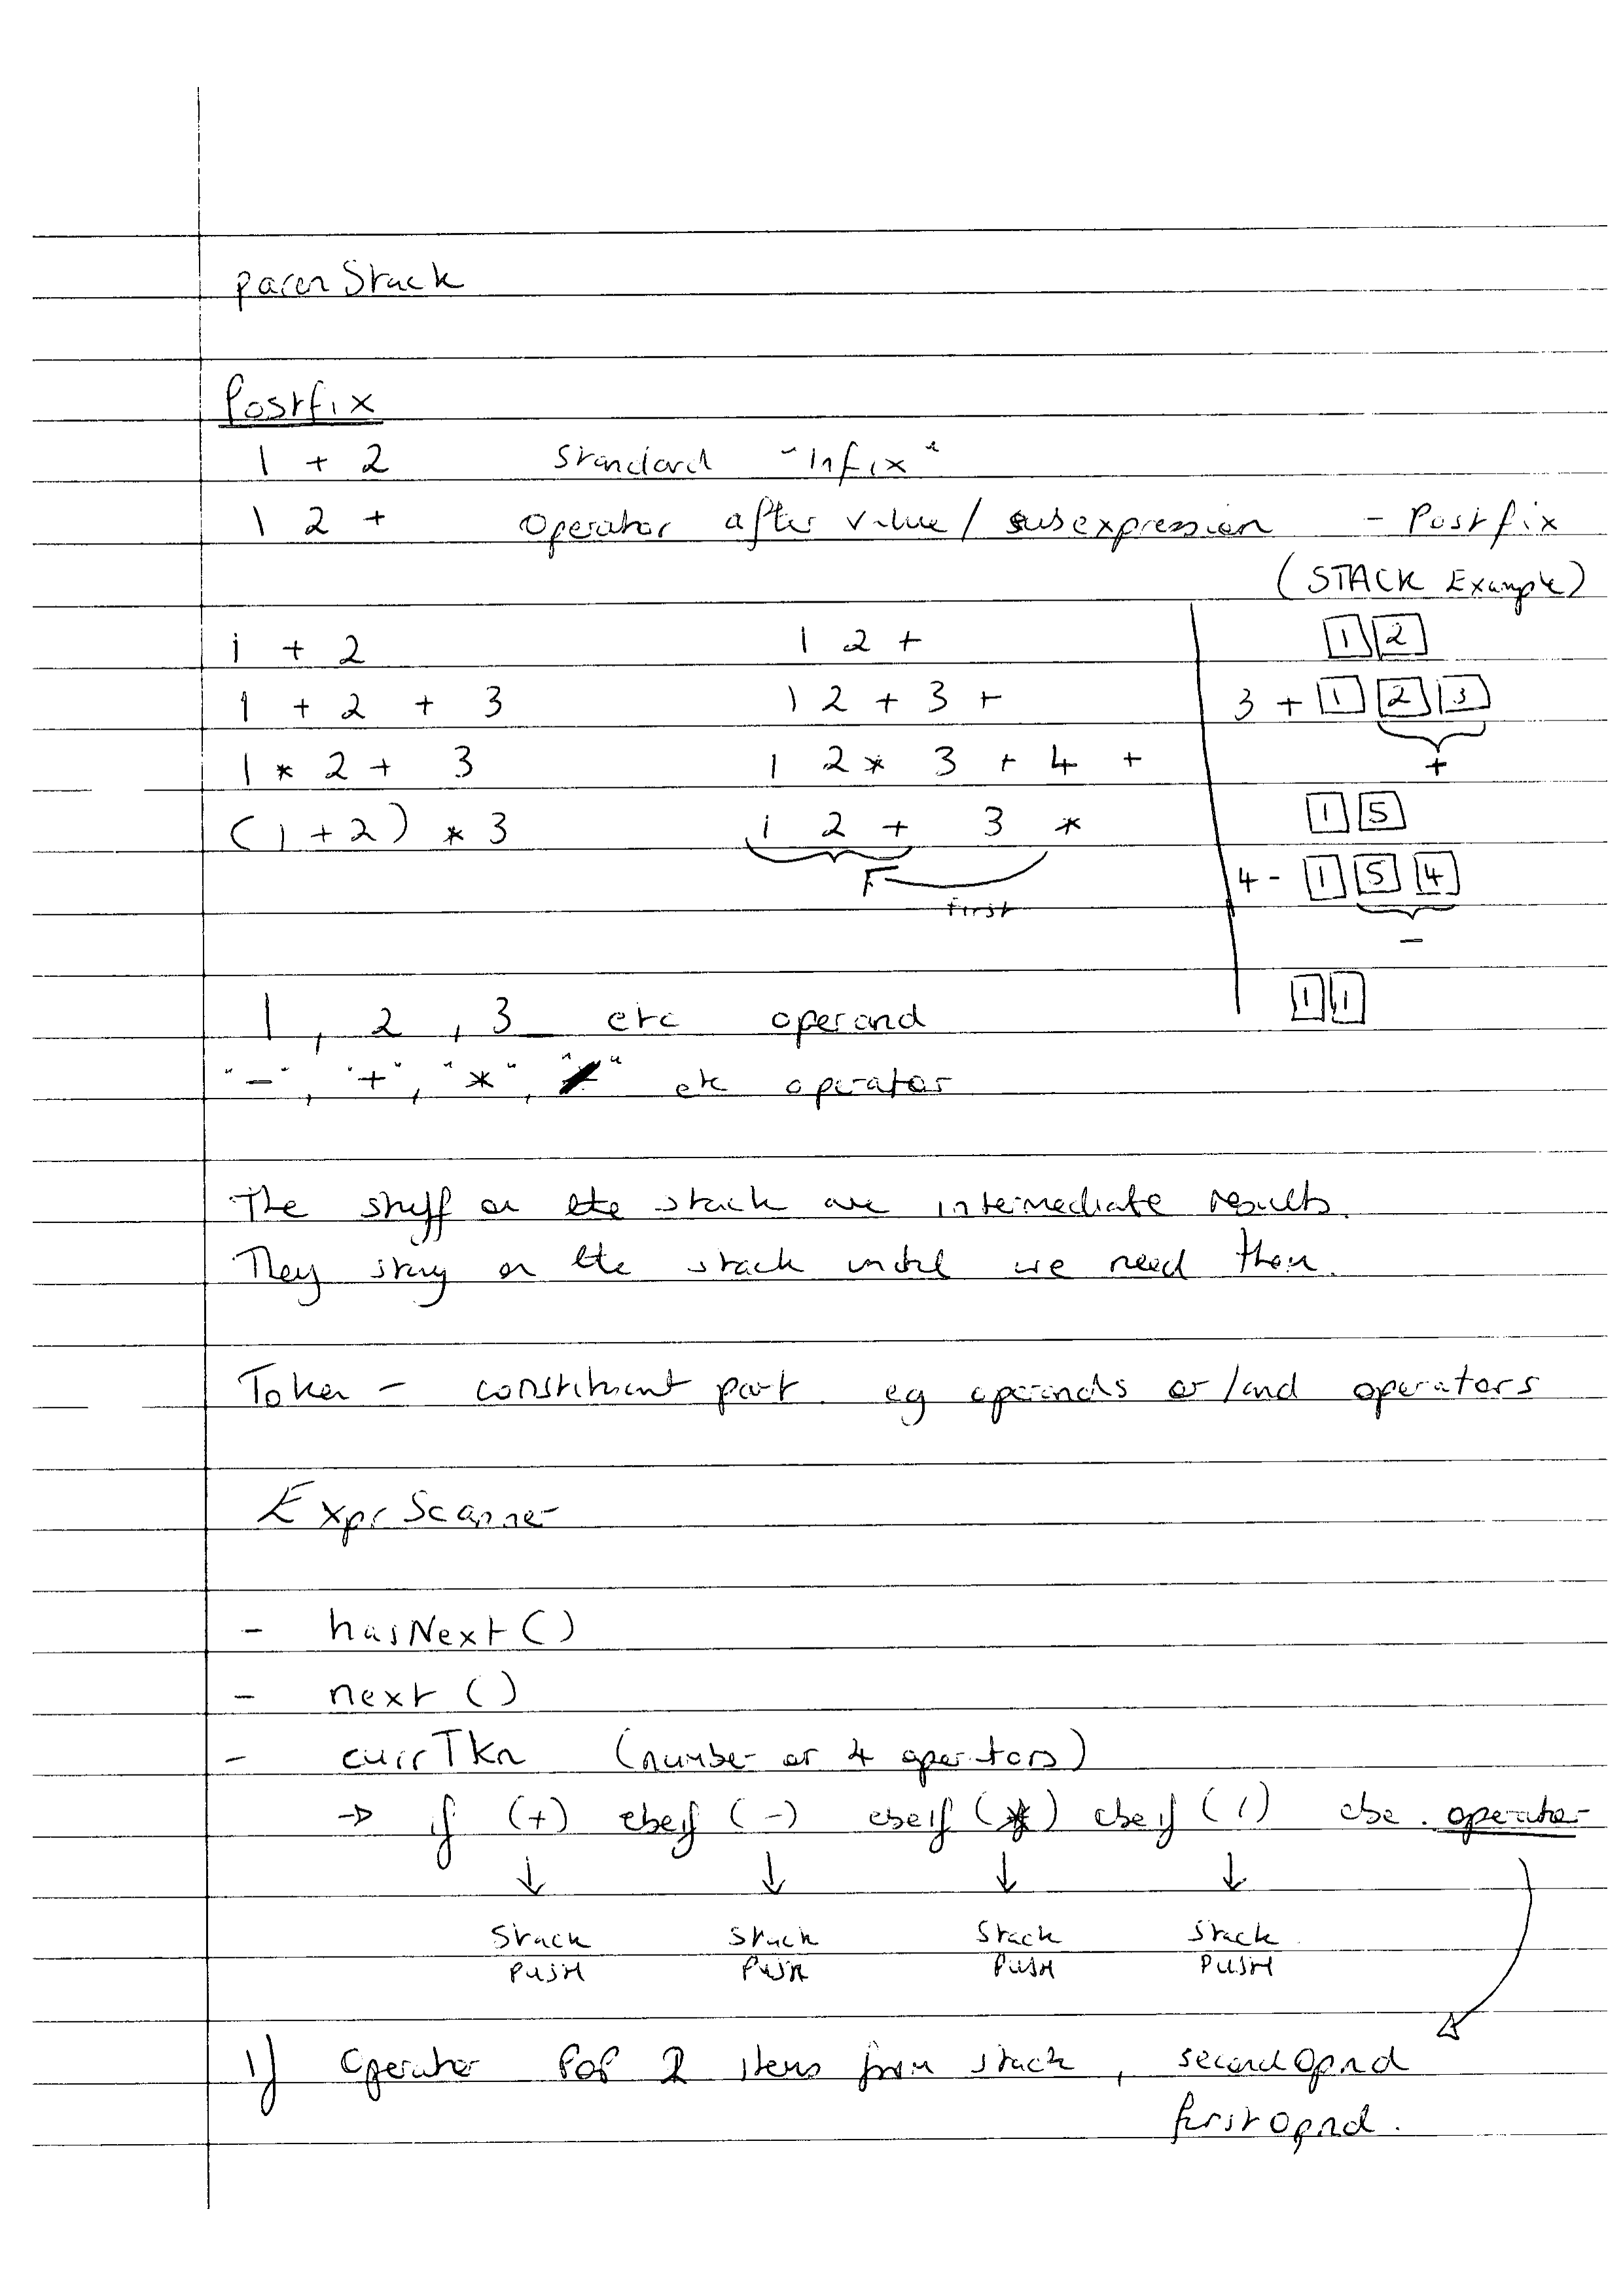 parenStack
Postfix
1 + 2 standard "Infix"
1 2 + operator after value / subexpression - Postfix
(STACK Example)
1 + 2 1 2 + 1 2
1 + 2 + 3 1 2 + 3 + 3 + 1 2 3
1 * 2 + 3 1 2 * 3 + 4 + +
(1 + 2) * 3 1 2 + 3 * 1 5
first 4 - 1 5 4
-
1 1
1, 2, 3 etc operand
"-", "+", "*", etc operator
The stuff on the stack are intermediate results.
They stay on the stack until we need them.
Token - constituent part. eg operands or/and operators
ExprScanner
- hasNext()
- next ()
- currTkn (number or 4 operators)
→ if (+) elseif (-) elseif (*) elseif (/) else. operator
↓ ↓ ↓ ↓
Stack Stack Stack Stack
PUSH PUSH PUSH PUSH
If operator POP 2 items from stack, secondOpnd
firstOpnd.